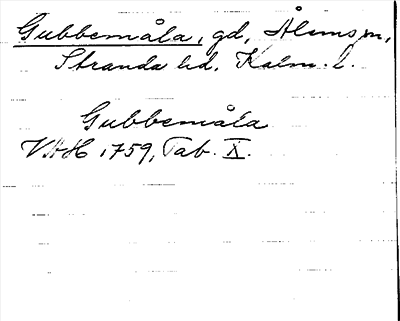 Gubbemåla, gd, Ålems sn,
Stranda hd, Kalm. l.
Gubbemåla
VAH 1759, Tab. X.